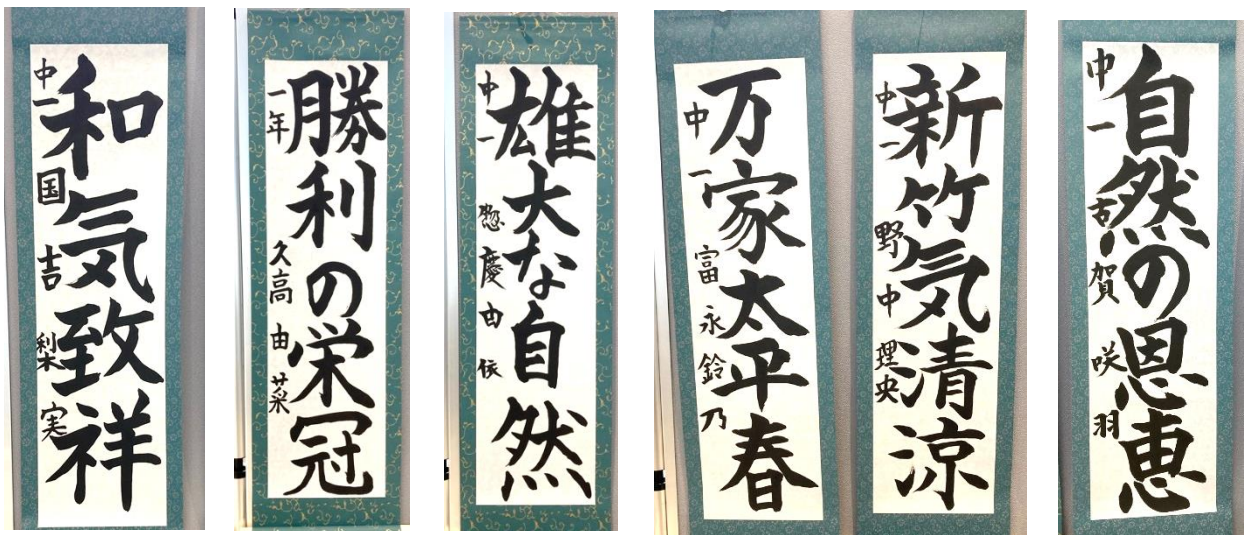 和気致祥
中一 国吉 梨実
勝利の栄冠
一年 久高 由菜
雄大な自然
中一 惣慶 由依
万家太平春
中一 富永 鈴乃
新竹気清涼
中一 野中 理央
自然の恩恵
中一 古賀 咲羽